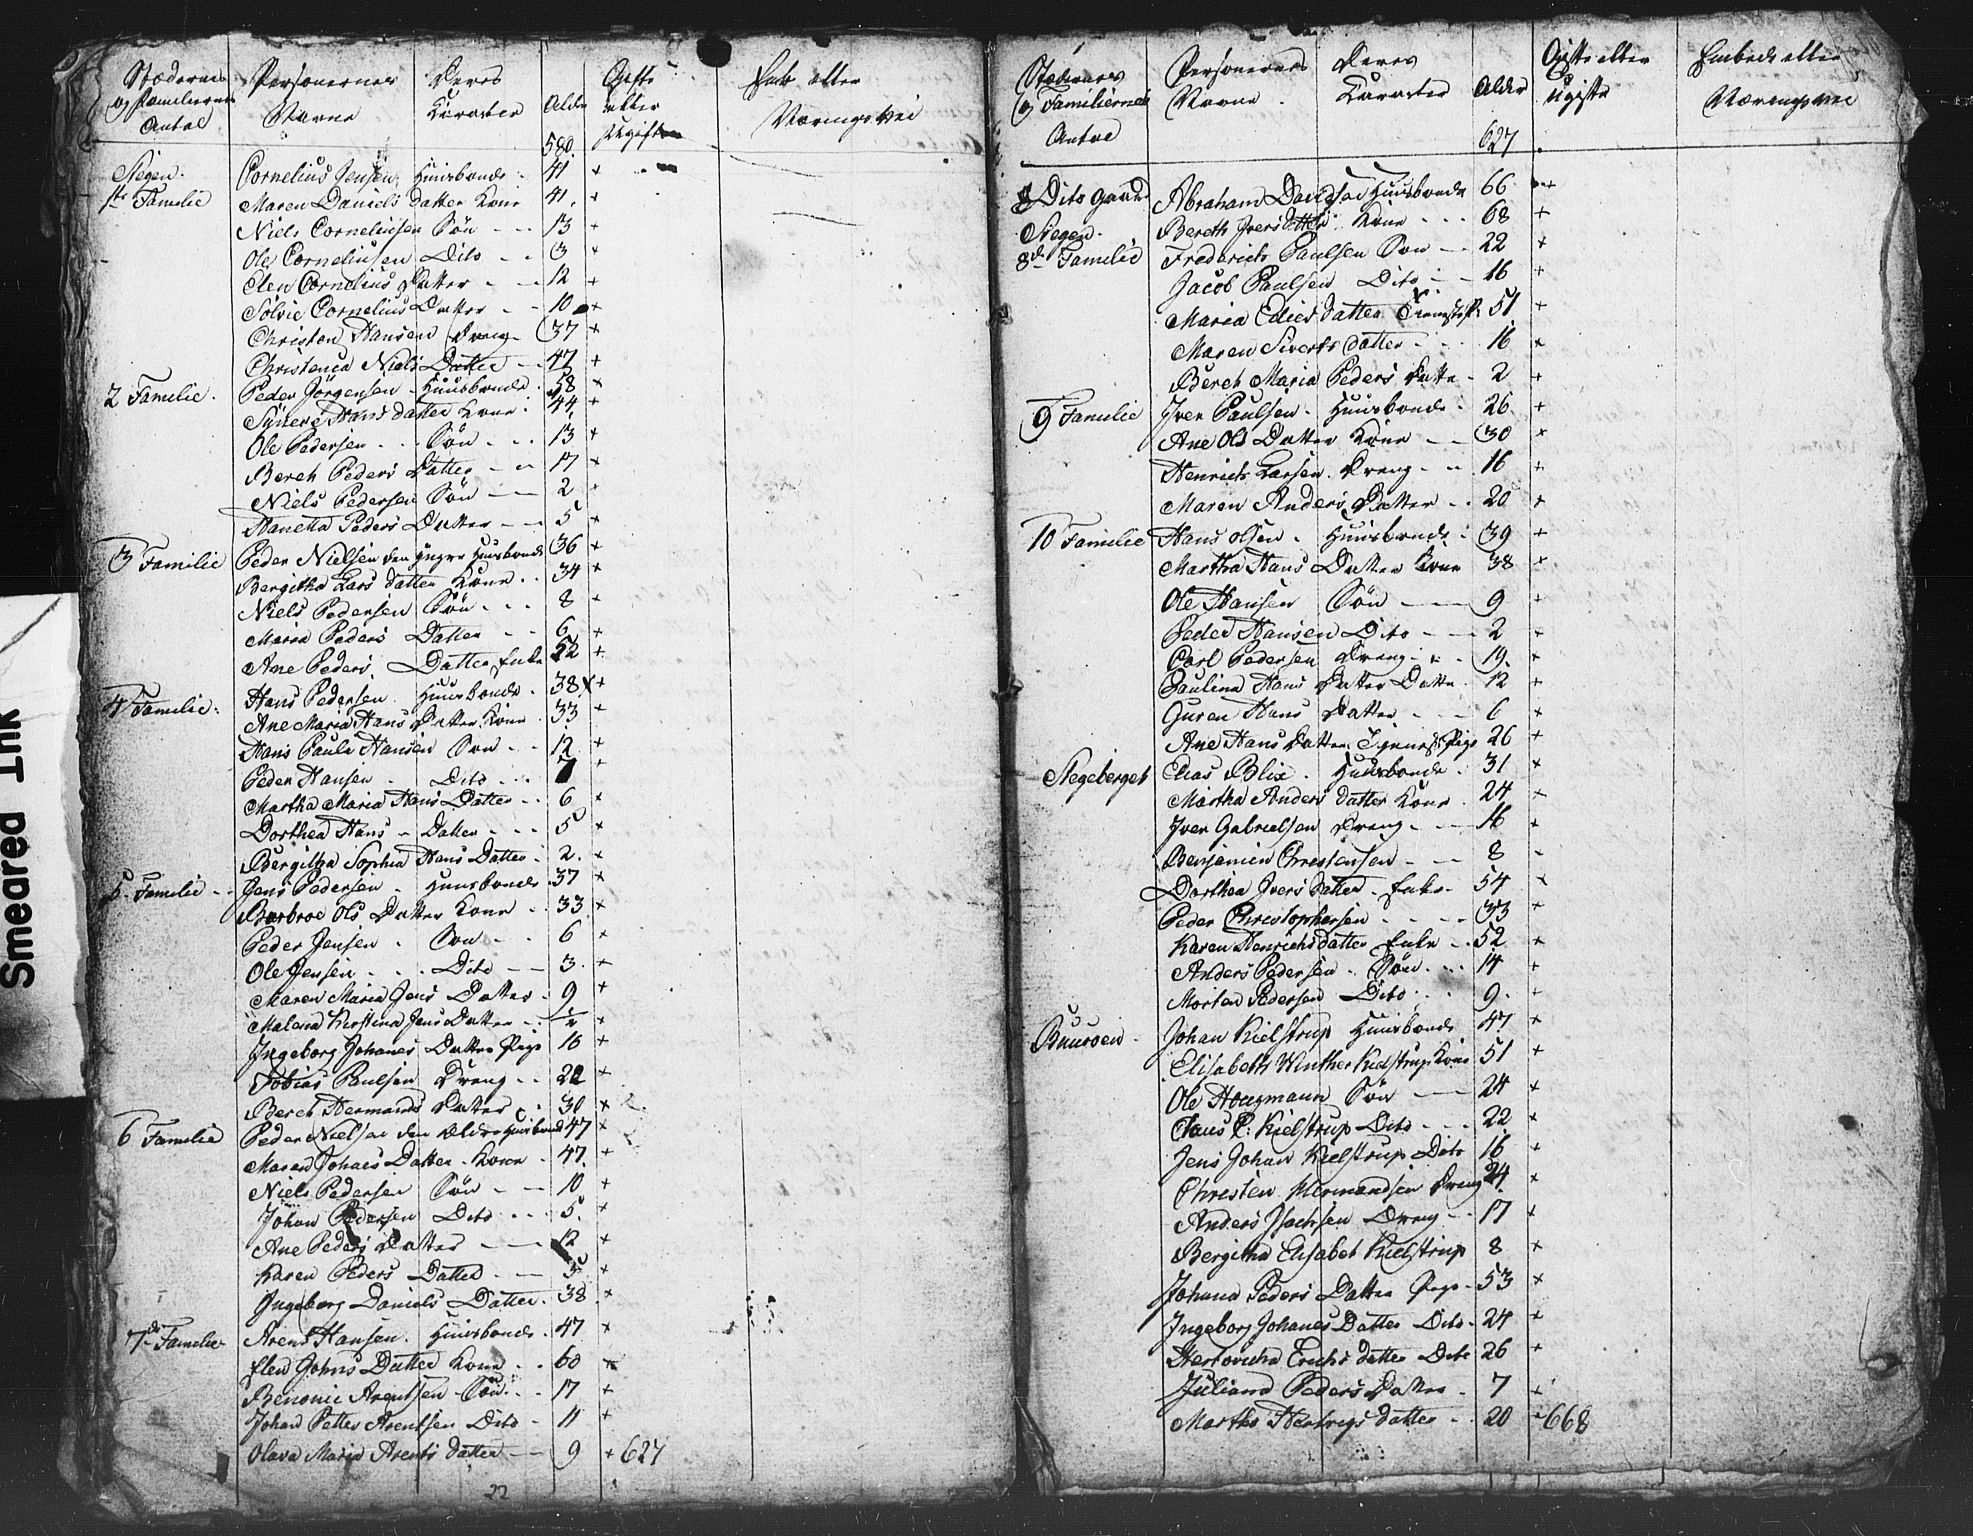 Stædernes og Familiernes Antal | Personernes Navne | Deres Karacter | Alder | Gifte eller Ugifte | Emb eller Næringsvei
580
Stegen. Cornelius Jensen Huusbonde 41 +
1ste Familie Maren Daniels datter Kone 41 +
Niels Cornelinsen Søn 13 +
Ole Cornelinsen Dito 3 +
Elen Cornelius Datter 12 +
Sølvie Cornelius Datter 10 +
Christen Hansen Dreng 37 +
Christenca Niels Datter 47 +
2 Familie. Peder Jørgensen Huusbonde 58 +
Synere Hans datter Kone 44 +
Ole Pedersen Søn 13 +
Bereh Peders Datter 17 +
Niels Pedersen Søn 2 +
Hanetta Peders Datter 5 +
3 Familie Peder Nielsen den yngre Huusbonde 36 +
Bergitha Lars datter Kone 34 +
Niels Pedersen Søn 8 +
Maria Peders Datter 6 +
Ane Peders Datter Enke 52 +
4 Familie. Hans Pedersen Huusbonde 38 +
Ane Maria Hans Datter Kone 33 +
Hans Paule Hansen Søn 12 +
Peder Hansen Dito +
Martha Maria Hans Datter 6 +
Dorthea Hans Datter 5 +
Bergitha Sophia Hans Datter 2 +
5 Familie Jens Pedersen Huusbonde 37 +
Barbroe Ols Datter Kone 33 +
Peder Jensen Søn 6 +
Ole Jensen Dito 3 +
Maren Maria Jens Datter 9 +
Malena Kirstina Jens Datter ½ +
Ingeborg Johanes Datter Pige 16 +
Tobias Paulsen Dreng 22 +
Bereh Hermands Datter 30 +
6 Familie Peder Nielsen den Ældre Huusbond 47 +
Maren Johnes Datter Kone 47 +
Niels Pedersen Søn 10 +
Johan Pedersen Dito 5 +
Ane Peders Datter 12 +
Karen Peders Datter 5 +
Ingeborg Daniels Datter 38 +
7de Familie Arent Hansen. Huusbonde 47 +
Elen Johns Datter Kone 60 +
Benonie Arentsen Søn 17 +
Johan Petter Arentsen Dito 11 +
Olava Maria Arents datter 9 + 627
22
Stædernes og Familiernes Antal | Personernes Navne | Deres Karacter | Alder | Gifte eller Ugifte | Embede eller Næringsvei
627
8 Dito Gaard Abraham Davidsen Huusbonde 66 +
Stegen. Bereth Ivers datter Kone 68 +
8de Familie Frederich Paulsen Søn 22 +
Jacob Paulsen Dito 16 +
Maria Edies datter Tienestp. 51 +
Maren Siverts datter 16 +
Bereh Maria Peders Datter 2 +
9 Familie Iver Paulsen Huusbonde 26 +
Ane Ols Datter Kone 30 +
Henrich Larsen Dreng 16 +
Maren Anders Datter 20 +
10 Familie Hans Olsen Huusbonde 39 +
Martha Hans Datter Kone 38 +
Ole Hansen Søn 9 +
Peder Hansen Dito 2 +
Carl Pedersen Dreng 19 +
Paulina Hans Datter Datter 12 +
Guren Hans Datter 6 +
Ane Hans Datter Tienest Pige 26 +
Stegeberget Elias Blix. Huusbonde 31 +
Martha Anders datter Kone 24 +
Iver Gabrielsen Dreng 16 +
Benjamin Christensen 8
Dorthea Ivers datter Enke 54
Peder Christophersen 33 +
Karen Henrichs datter Enke 52 +
Anders Pedersen Søn 14 +
Morten Pedersen Dito 9 +
Buuroen Johan Kielstrup Huusbonde 47 +
Elisabeth Winther Kielstrup Kone 51 +
Ole Hougmann Søn 24 +
Claus P: Kielstrup Dito 22 +
Jens Johan Kielstrup Dito 16 +
Christen Hermandsen Dreng 24 +
Anders Isachsen Dreng 17 +
Bergitha Elisabet Kielstrup 8 +
Johana Peders Datter Pige 53 +
Ingeborg Johanes Datter Dito 24 +
Erichs datter Dito 26 +
Juliana Peders Datter 7 +
Martha Hertvigs datter 20 + 668
Smeared Ink